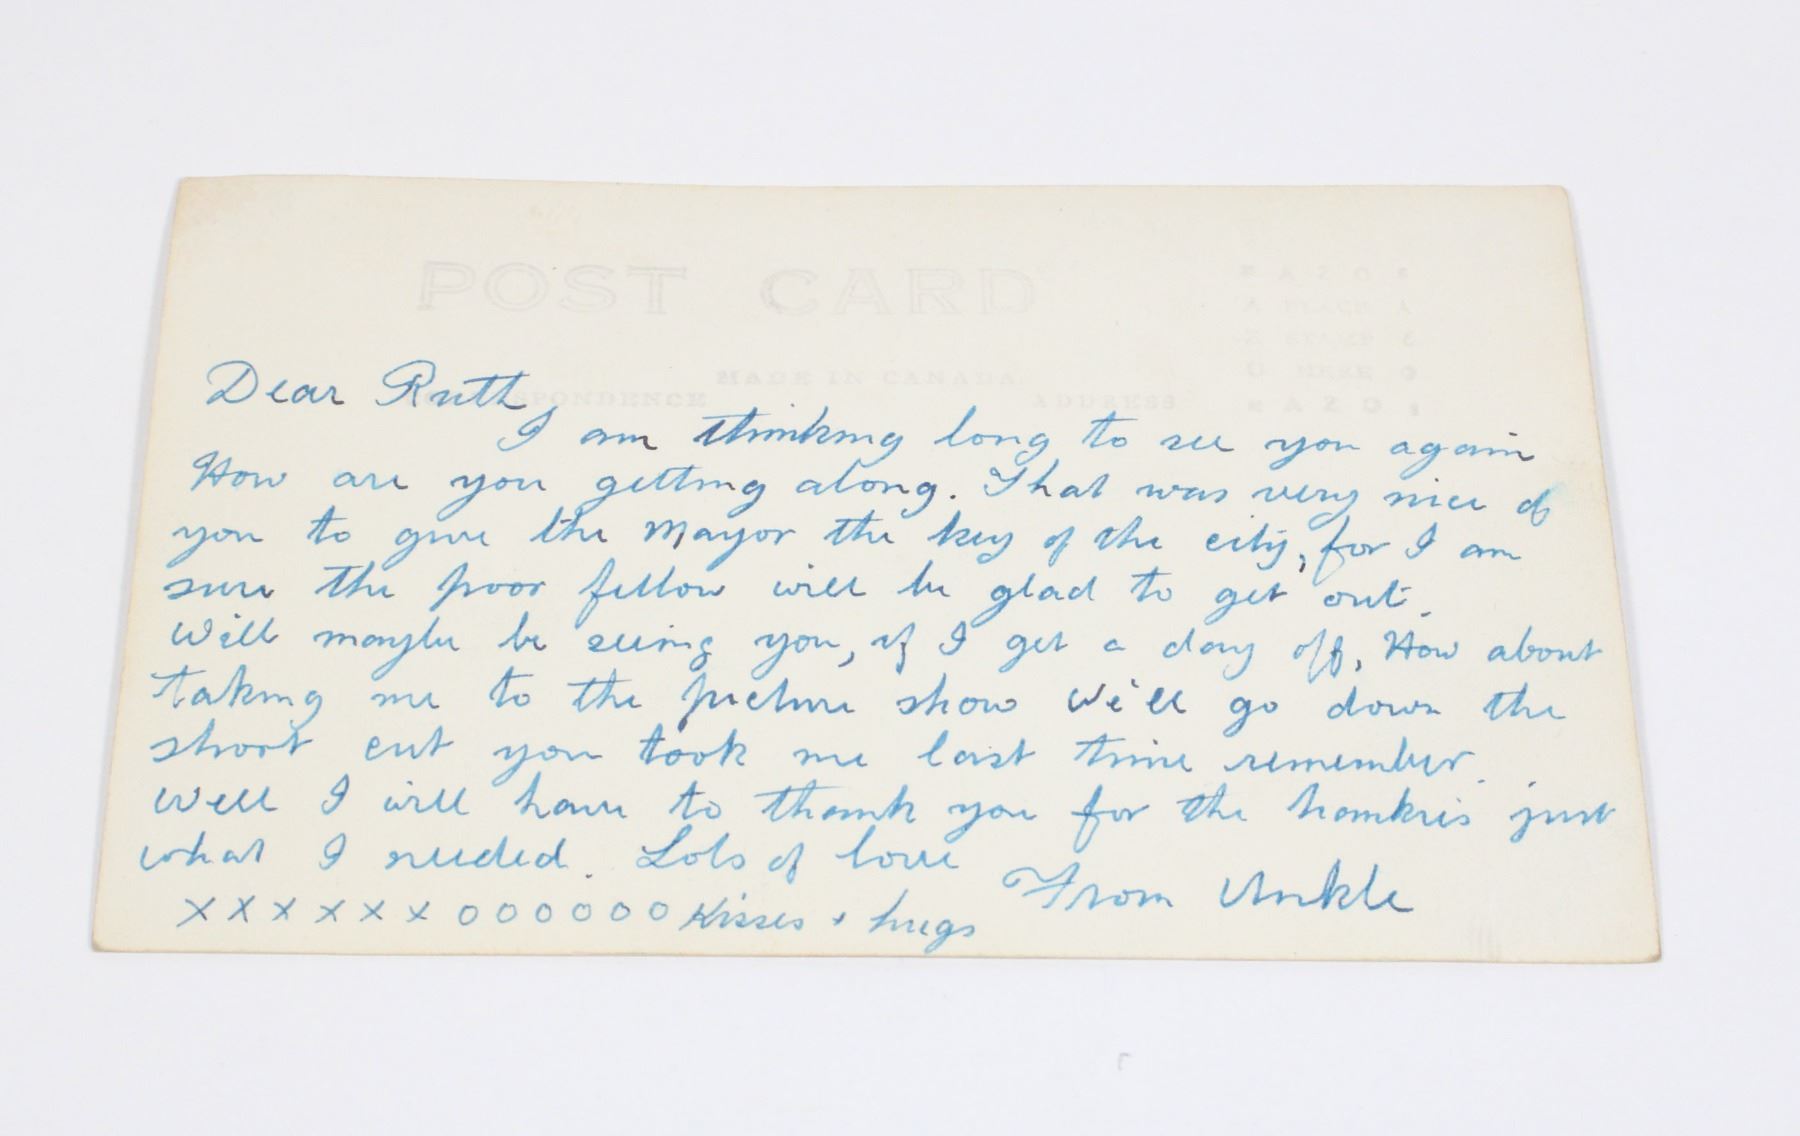 POST CARD
MADE IN CANADA
CORRESPONDENCE ADDRESS
A Z O
PLACE
STAMP
HERE
A Z O
Dear Ruth,
I am thinking long to see you again
How are you getting along. That was very nice of
you to give the Mayor the key of the city, for I am
sure the poor fellow will be glad to get out.
Will maybe be seeing you, if I get a day off, How about
taking me to the picture show We'll go down the
short cut you took me last time remember.
Well I will have to thank you for the hankies just
what I needed. Lots of love
From Unkle
X X X X X X O O O O O O Kisses + hugs